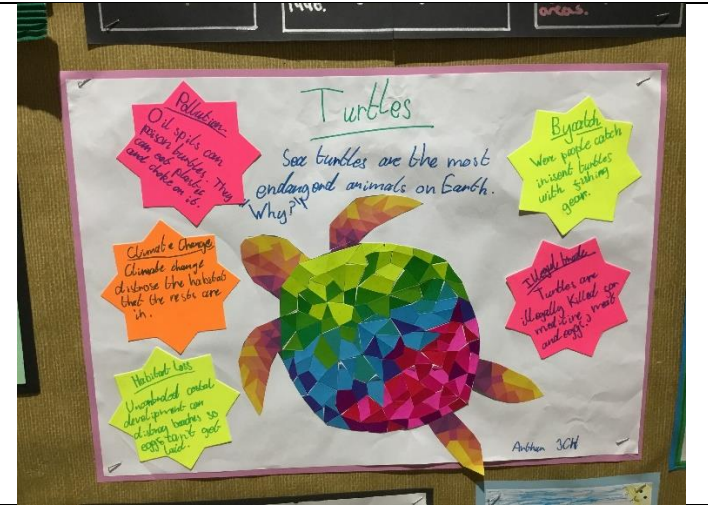 1440.
areas.
Turtles
Sea turtles are the most
endangerd animals on Earth.
Why?
Pollution
Oil spils can
poison turtles. They
can eat plastic
and choke on it.
Climate Change
Climate change
distrose the habitat
that the nests are
in.
Habitat Loss
development can
distroy beaches so
get
laid.
Bycatch
Were people catch
inisent turtles
with fishing
gear.
Illegal trade
Turtles are
illegally killed for
meat
and eggs.
3CH